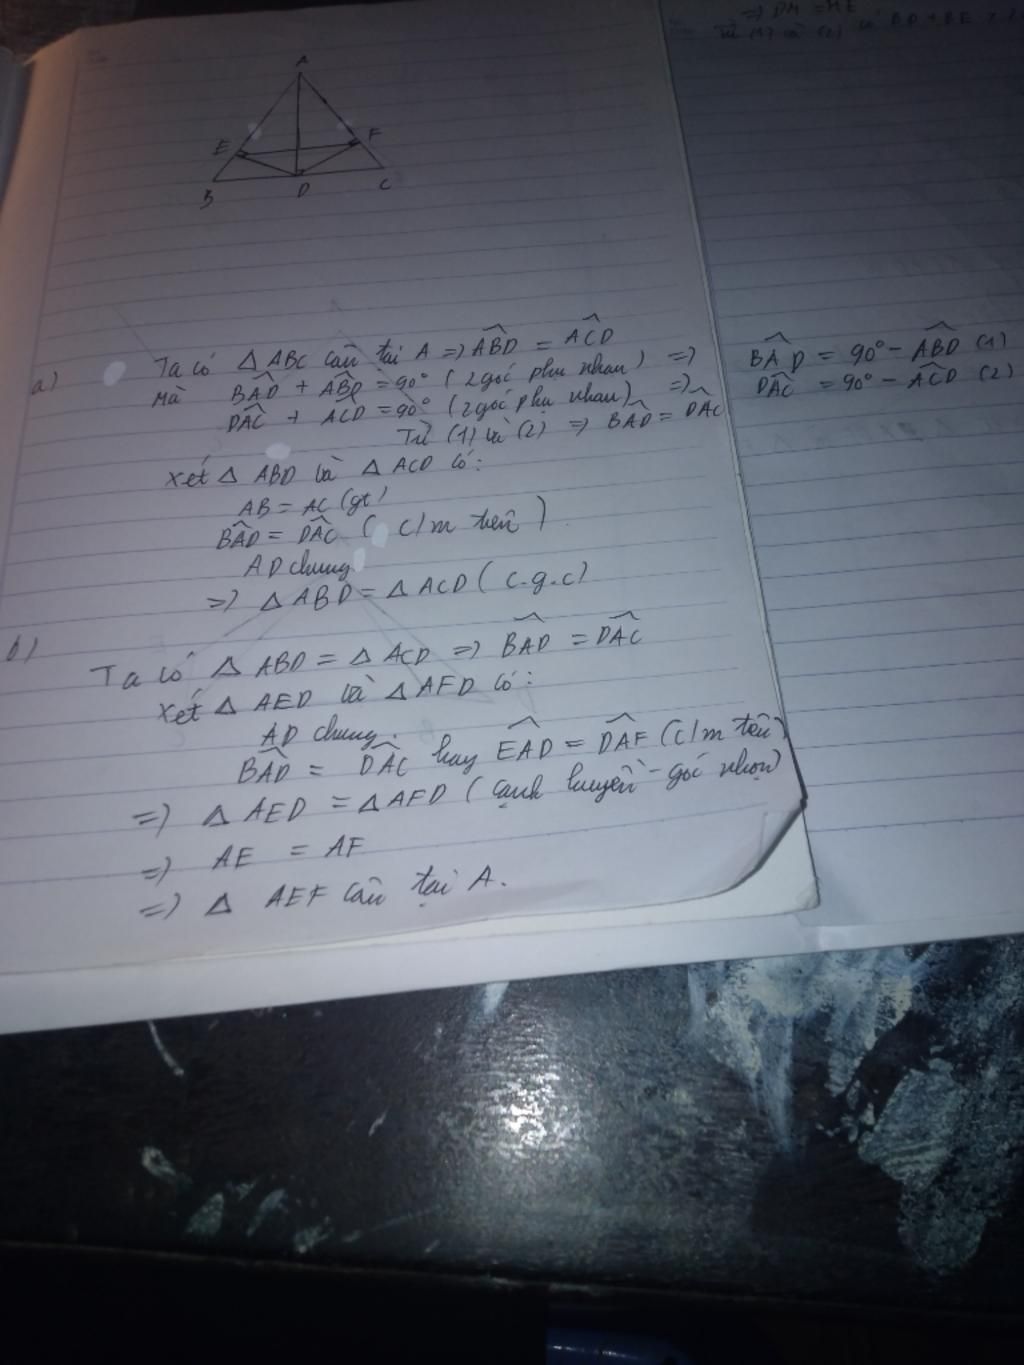 => DM = ME
Từ (1) và (2) có BD + BE >
A
E
F
B
D
C
a) Ta có △ ABC cân tại A => ABD = ACD
Mà BAD + ABD = 90° (2 góc phụ nhau) => BAD = 90° - ABD (1)
DAC + ACD = 90° (2 góc phụ nhau) => DAC = 90° - ACD (2)
Từ (1) và (2) => BAD = DAC
Xét △ ABD và △ ACD có:
AB = AC (gt)
BAD = DAC ( c/m trên )
AD chung
=> △ ABD = △ ACD ( c.g.c)
b)
Ta có △ ABD = △ ACD => BAD = DAC
Xét △ AED và △ AFD có:
AD chung.
BAD = DAC hay EAD = DAF (c/m trên)
=> △ AED = △ AFD ( cạnh huyền - góc nhọn)
=> AE = AF
=> △ AEF cân tại A.